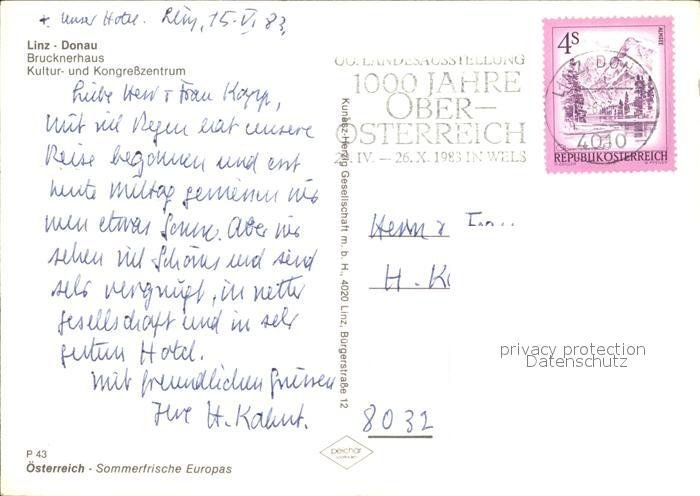 * unser Hotel. Linz, 15. VI. 83,
Linz - Donau
Brucknerhaus
Kultur- und Kongreßzentrum
Liebe Herr + Frau Kapp,
mit viel Regen hat unsere
Reise begonnen und erst
heute Mittag geniessen wir
nun etwas Sonne. Aber wir
sehen viel Schönes und sind
sehr vergnügt, in netter
Gesellschaft und in sehr
gutem Hotel.
mit freundlichen Grüssen
Ihre H.
P 43
Österreich - Sommerfrische Europas
Kunasz-Herzig Gesellschaft m. b. H., 4020 Linz, Bürgerstraße 12
peichär
OÖ. LANDESAUSSTELLUNG
1000 JAHRE
OBER-
ÖSTERREICH
IV. - 26. X. 1983 IN WELS
4S
ALMSEE
LINZ DONAU
4010
REPUBLIK ÖSTERREICH
Herrn +
H. K
8032
privacy protection
Datenschutz